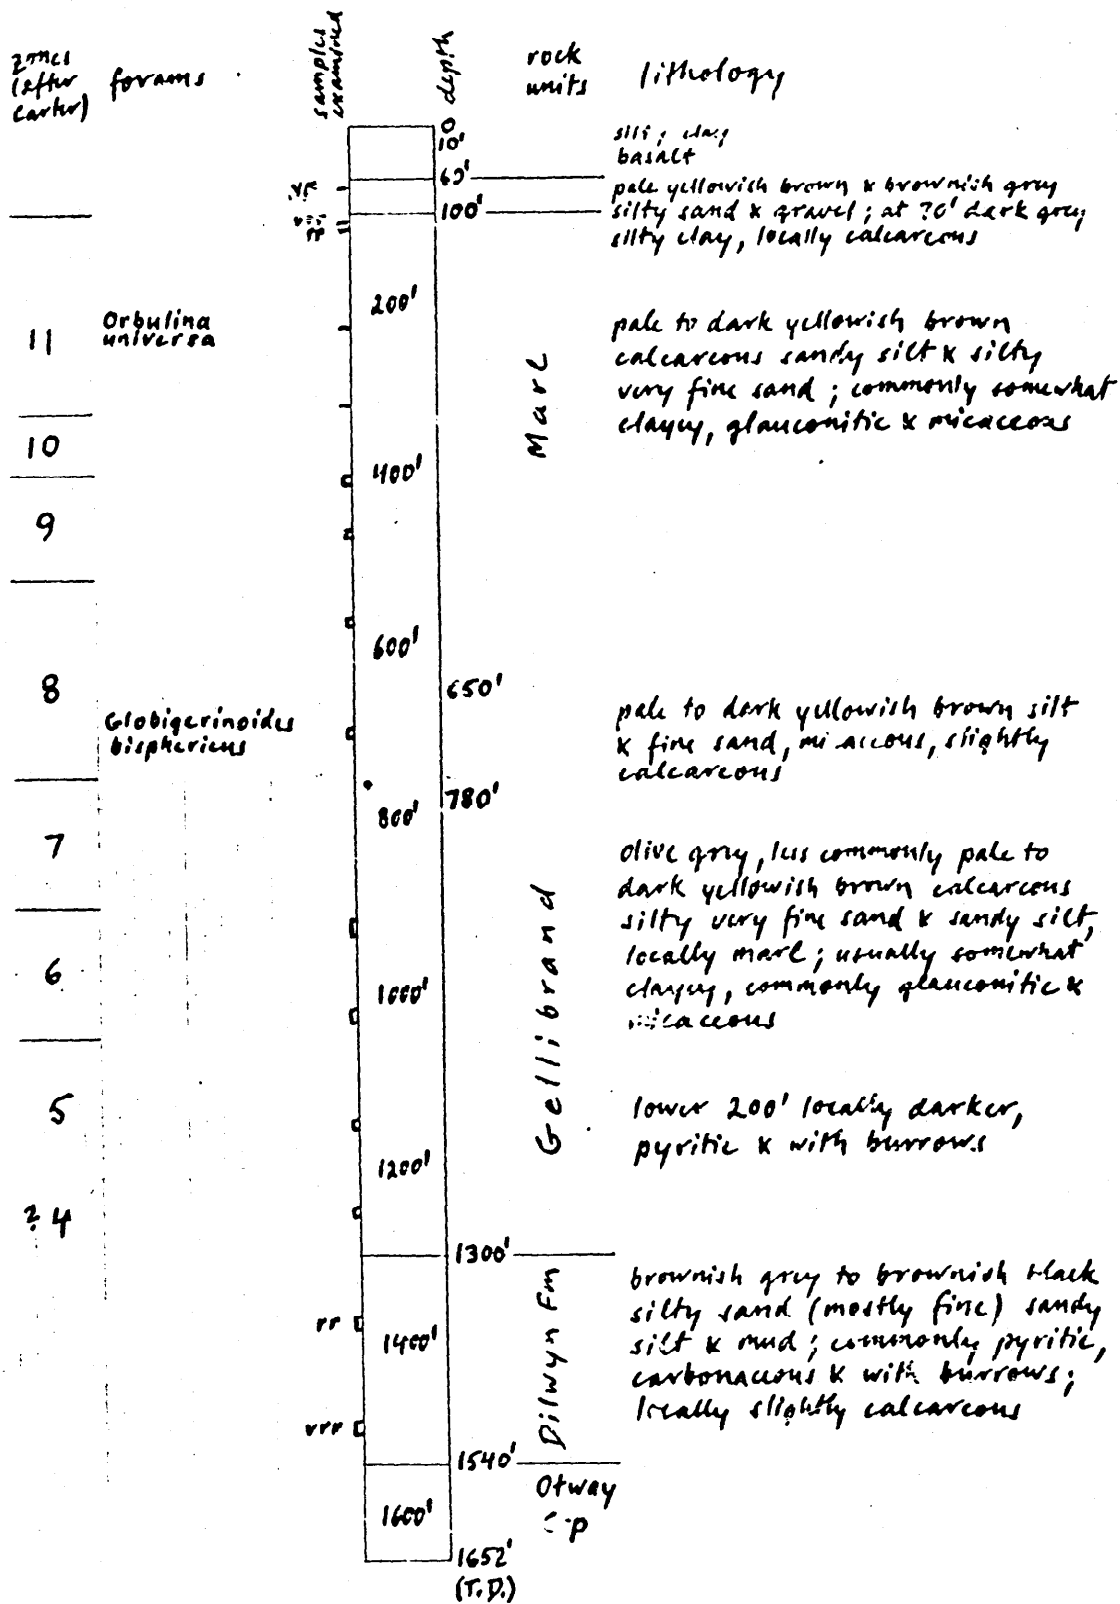 zones
(after
Carter)
forams
samples
examined
depth
rock
units
lithology
0
10'
60'
100'
200'
400'
600'
650'
780'
800'
1000'
1200'
1300'
1400'
1540'
1600'
1652'
(T.D.)
rr
rr
vrr
11
10
9
8
7
6
5
? 4
Orbulina
universa
Globigerinoides
bisphericus
Gellibrand Marl
Dilwyn Fm
Otway
silt; clay
basalt
pale yellowish brown & brownish grey
silty sand & gravel; at 70' dark grey
silty clay, locally calcareous
pale to dark yellowish brown
calcareous sandy silt & silty
very fine sand; commonly somewhat
clayey, glauconitic & micaceous
pale to dark yellowish brown silt
& fine sand, mi aceous, slightly
calcareous
olive grey, less commonly pale to
dark yellowish brown calcareous
silty very fine sand & sandy silt,
locally marl; usually somewhat
clayey, commonly glauconitic &
micaceous
lower 200' locally darker,
pyritic & with burrows
brownish grey to brownish black
silty sand (mostly fine) sandy
silt & mud; commonly pyritic,
carbonaceous & with burrows;
locally slightly calcareous